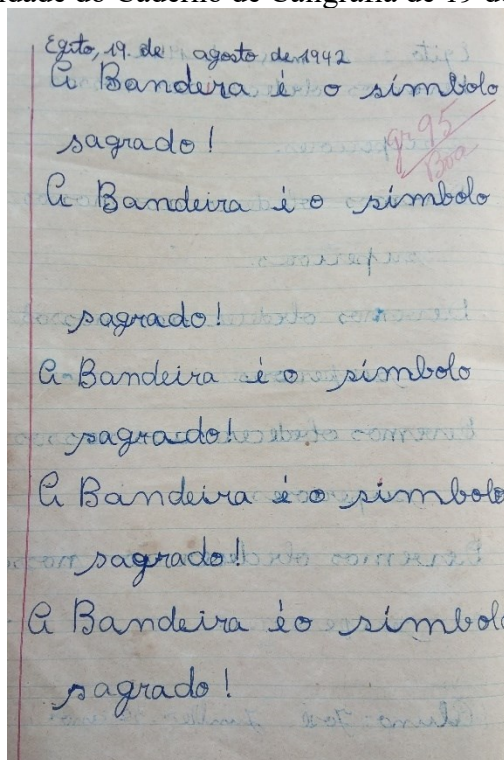 do Caderno de Caligrafia de 19 de
Egito, 19. de agosto de 1942
A Bandeira é o símbolo
sagrado!
gr 95
Boa
A Bandeira é o símbolo
sagrado!
A Bandeira é o símbolo
sagrado!
A Bandeira é o símbolo
sagrado!
A Bandeira é o símbolo
sagrado!